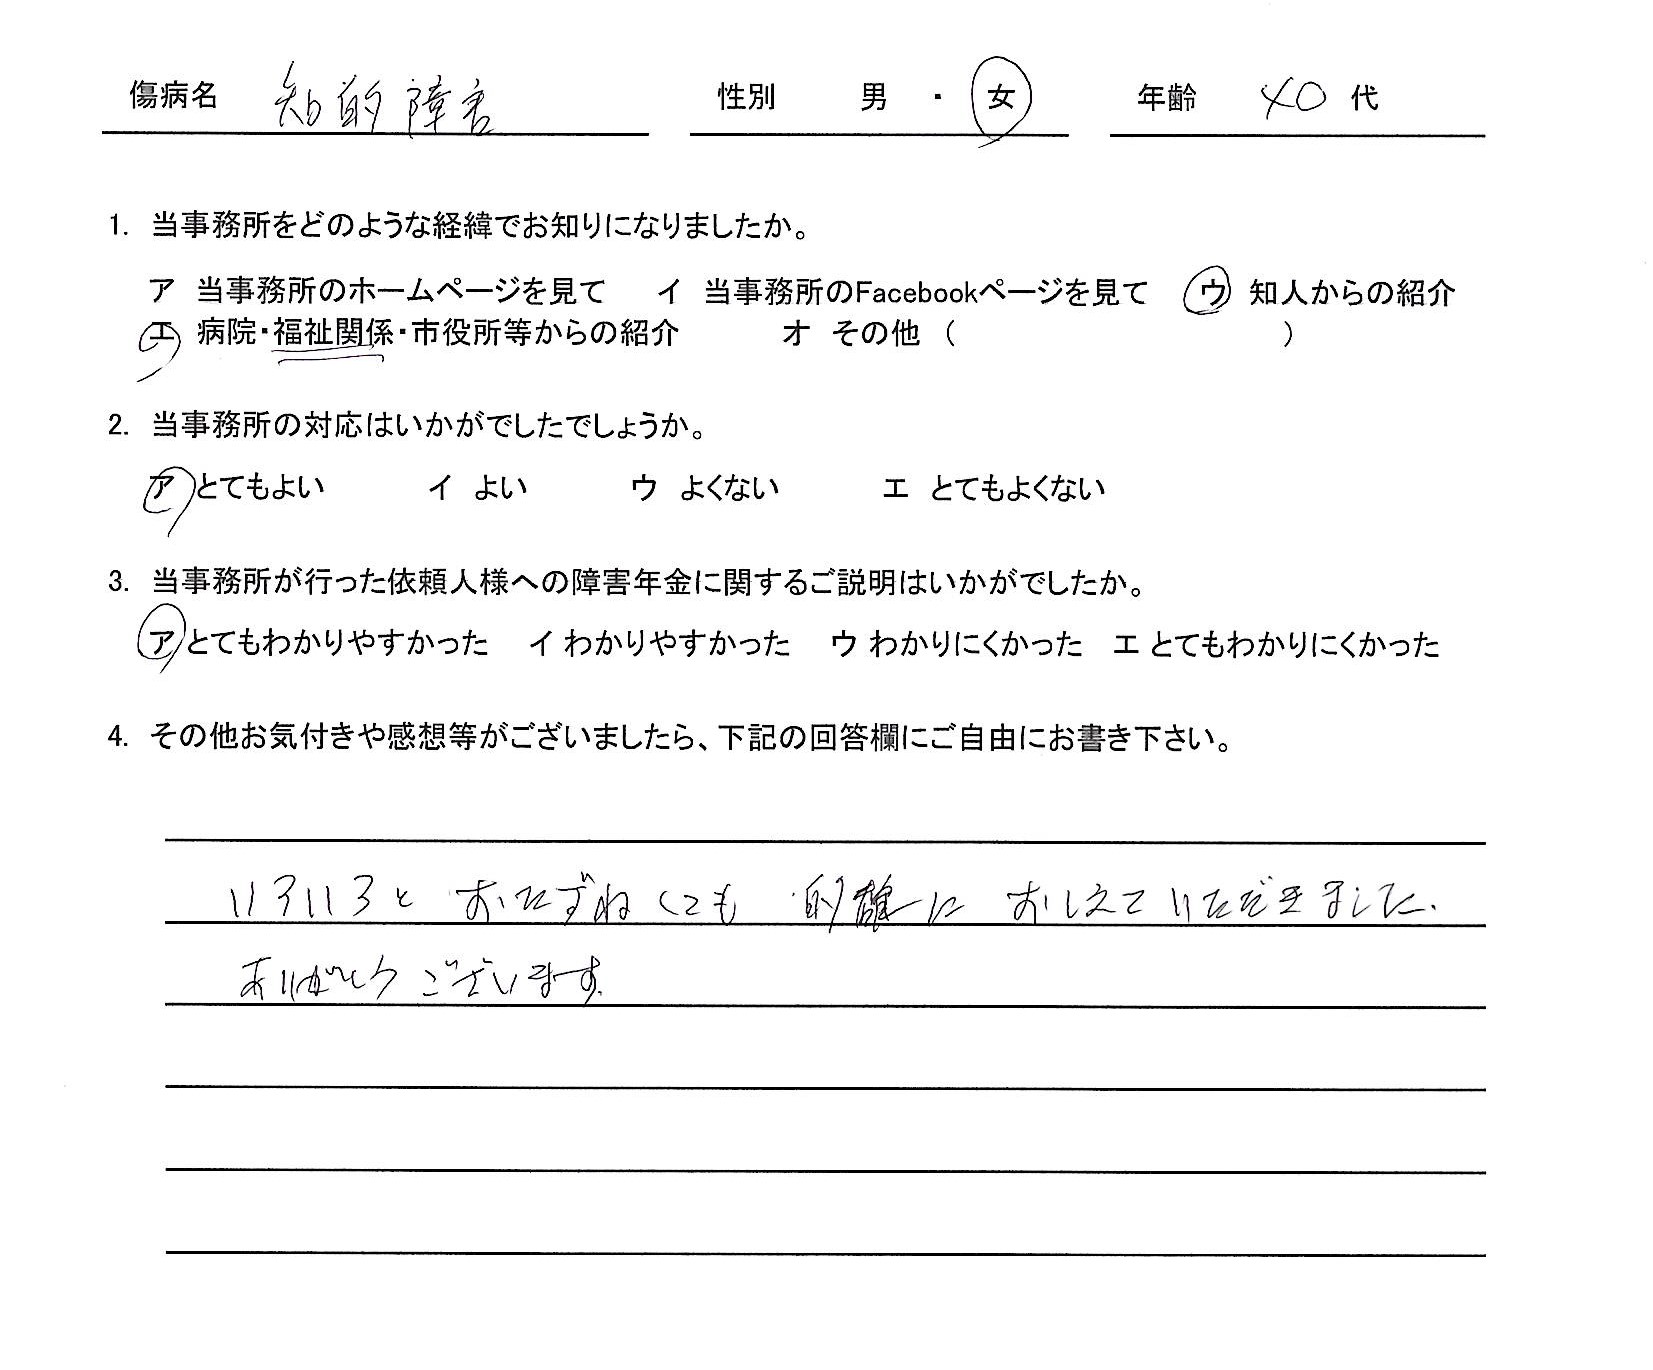 傷病名 知的障害 性別 男 ・ 女 年齢 40 代
1. 当事務所をどのような経緯でお知りになりましたか。
ア 当事務所のホームページを見て イ 当事務所のFacebookページを見て ウ 知人からの紹介
エ 病院・福祉関係・市役所等からの紹介 オ その他 ( )
2. 当事務所の対応はいかがでしたでしょうか。
ア とてもよい イ よい ウ よくない エ とてもよくない
3. 当事務所が行った依頼人様への障害年金に関するご説明はいかがでしたか。
ア とてもわかりやすかった イ わかりやすかった ウ わかりにくかった エ とてもわかりにくかった
4. その他お気付きや感想等がございましたら、下記の回答欄にご自由にお書き下さい。
いろいろと おたずねしても 的確に おしえていただきました.
ありがとう ございます.